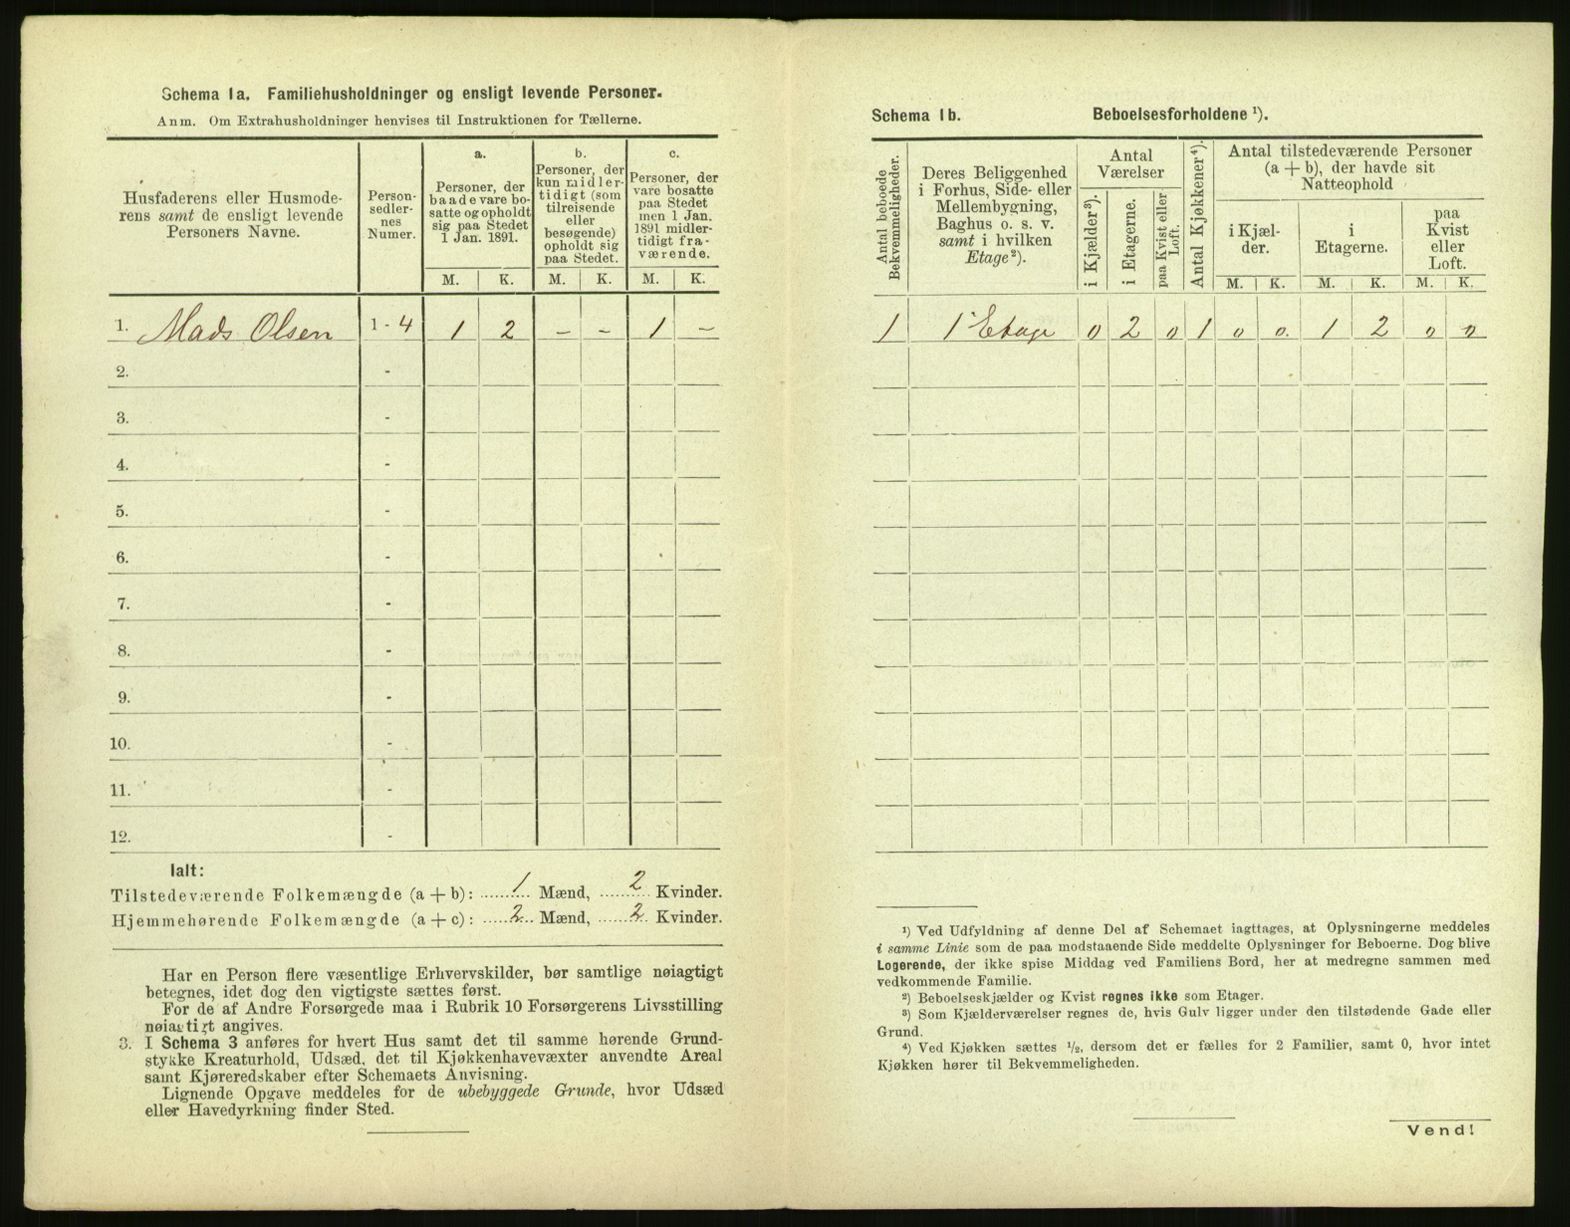 Schema 1a. Familiehusholdninger og ensligt levende Personer.
Anm. Om Extrahusholdninger henvises til Instruktionen for Tællerne.
Husfaderens eller Husmode-
rens samt de ensligt levende
Personers Navne.
Person-
sedler-
nes
Numer.
a.
Personer, der
baade vare bo-
satte og opholdt
sig paa Stedet
1 Jan. 1891.
b.
Personer, der
kun midler-
tidigt (som
tilreisende
eller
besøgende)
opholdt sig
paa Stedet.
c.
Personer, der
vare bosatte
paa Stedet
men 1 Jan.
1891 midler-
tidigt fra-
værende.
M. K. M. K. M. K.
1. Mads Olsen 1 - 4 1 2 - - 1 -
2. -
3. -
4. -
5. -
6. -
7. -
8. -
9. -
10. -
11. -
12. -
Ialt:
Tilstedeværende Folkemængde (a + b): 1 Mænd, 2 Kvinder.
Hjemmehørende Folkemængde (a + c): 2 Mænd, 2 Kvinder.
Har en Person flere væsentlige Erhvervskilder, bør samtlige nøiagtigt
betegnes, idet dog den vigtigste sættes først.
For de af Andre Forsørgede maa i Rubrik 10 Forsørgerens Livsstilling
nøiagtigt angives.
3. I Schema 3 anføres for hvert Hus samt det til samme hørende Grund-
stykke Kreaturhold, Udsæd, det til Kjøkkenhavevæxter anvendte Areal
samt Kjøreredskaber efter Schemaets Anvisning.
Lignende Opgave meddeles for de ubebyggede Grunde, hvor Udsæd
eller Havedyrkning finder Sted.
Schema 1b. Beboelsesforholdene ¹).
Antal beboede
Bekvemmeligheder.
Deres Beliggenhed
i Forhus, Side- eller
Mellembygning,
Baghus o. s. v.
samt i hvilken
Etage²).
Antal
Værelser
i Kjælder³).
i Etagerne.
paa Kvist eller
Loft.
Antal Kjøkkener⁴).
Antal tilstedeværende Personer
(a + b), der havde sit
Natteophold
i Kjæl-
der.
i
Etagerne.
paa
Kvist
eller
Loft.
M. K. M. K. M. K.
1 1' Etage 0 2 0 1 0 0. 1 2 0 0
¹) Ved Udfyldning af denne Del af Schemaet iagttages, at Oplysningerne meddeles
i samme Linie som de paa modstaaende Side meddelte Oplysninger for Beboerne. Dog blive
Logerende, der ikke spise Middag ved Familiens Bord, her at medregne sammen med
vedkommende Familie.
²) Beboelseskjælder og Kvist regnes ikke som Etager.
³) Som Kjælderværelser regnes de, hvis Gulv ligger under den tilstødende Gade eller
Grund.
⁴) Ved Kjøkken sættes ½, dersom det er fælles for 2 Familier, samt 0, hvor intet
Kjøkken hører til Bekvemmeligheden.
Vend!